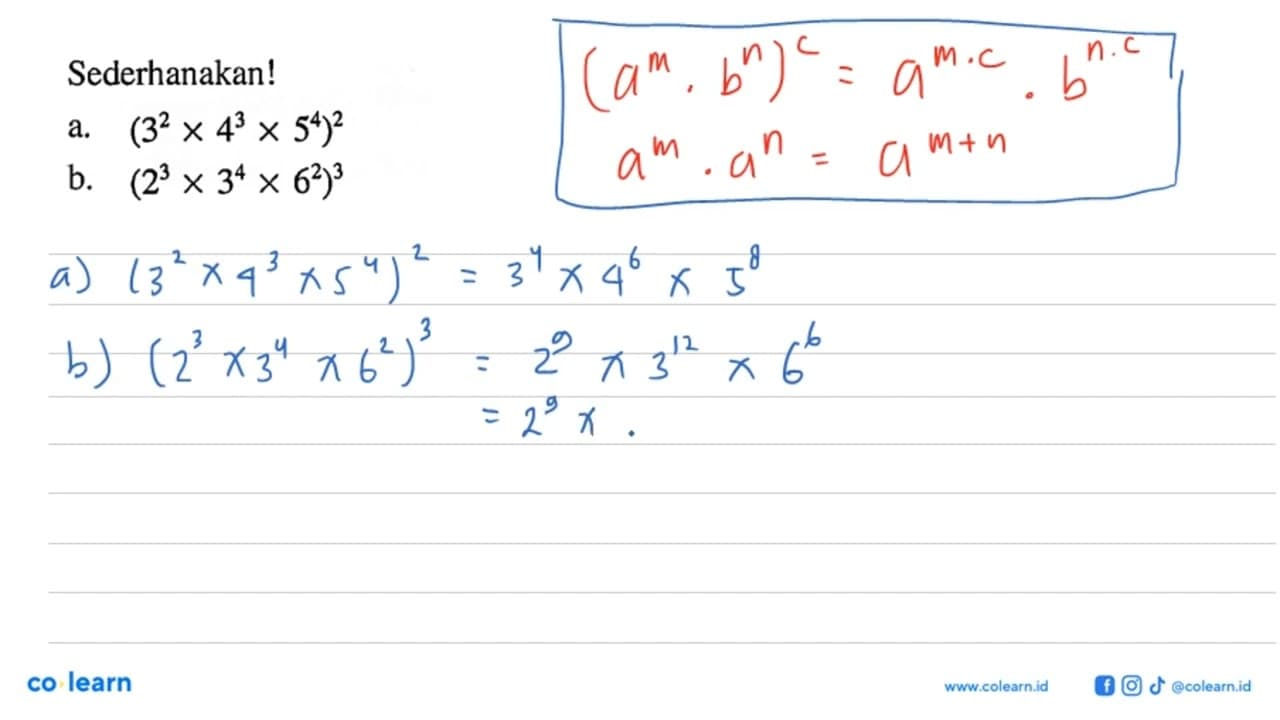 Sederhanakan!
a. (3² × 4³ × 5⁴)²
b. (2³ × 3⁴ × 6²)³
(aᵐ . bⁿ)ᶜ = aᵐ·ᶜ . bⁿ·ᶜ
aᵐ . aⁿ = aᵐ⁺ⁿ
a) (3² × 4³ × 5⁴)² = 3⁴ × 4⁶ × 5⁸
b) (2³ × 3⁴ × 6²)³ = 2⁹ × 3¹² × 6⁶
= 2⁹ × .
co learn
www.colearn.id @colearn.id